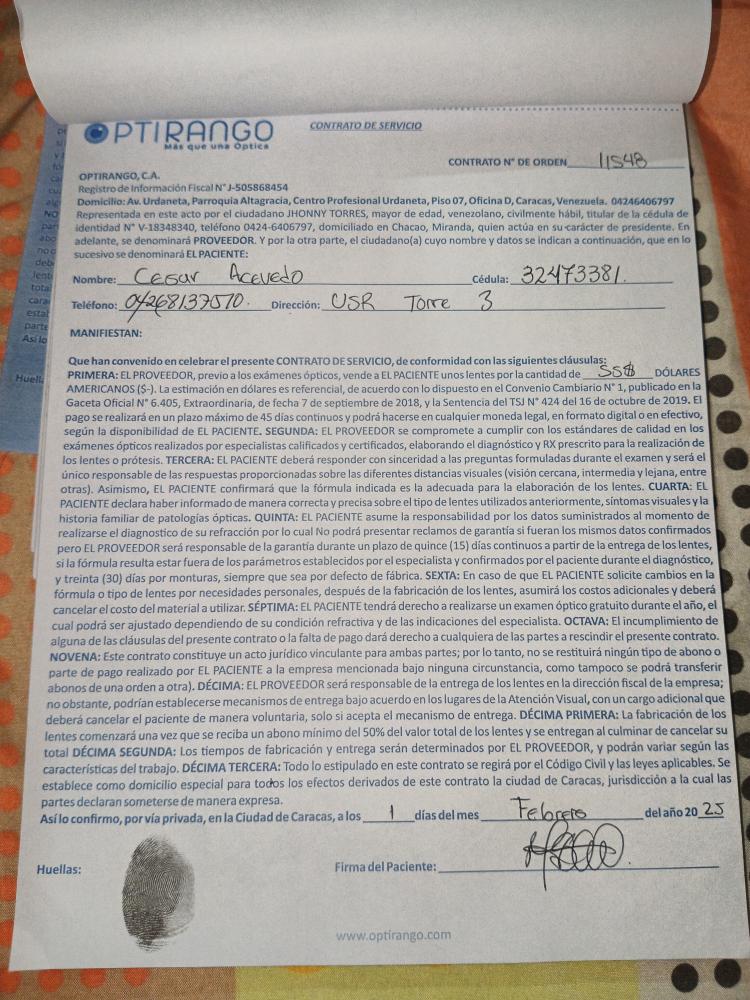 OPTIRANGO
Más que una Óptica
CONTRATO DE SERVICIO
CONTRATO N° DE ORDEN 11548
OPTIRANGO, C.A.
Registro de Información Fiscal N° J-505868454
Domicilio: Av. Urdaneta, Parroquia Altagracia, Centro Profesional Urdaneta, Piso 07, Oficina D, Caracas, Venezuela. 04246406797
Representada en este acto por el ciudadano JHONNY TORRES, mayor de edad, venezolano, civilmente hábil, titular de la cédula de
identidad N° V-18348340, teléfono 0424-6406797, domiciliado en Chacao, Miranda, quien actúa en su carácter de presidente. En
adelante, se denominará PROVEEDOR. Y por la otra parte, el ciudadano(a) cuyo nombre y datos se indican a continuación, que en lo
sucesivo se denominará EL PACIENTE:
Nombre: Cesar Acevedo Cédula: 32473381.
Teléfono: 04268137510. Dirección: USR Torre 3
MANIFIESTAN:
Que han convenido en celebrar el presente CONTRATO DE SERVICIO, de conformidad con las siguientes cláusulas:
PRIMERA: EL PROVEEDOR, previo a los exámenes ópticos, vende a EL PACIENTE unos lentes por la cantidad de 55$ DÓLARES
AMERICANOS ($-). La estimación en dólares es referencial, de acuerdo con lo dispuesto en el Convenio Cambiario N° 1, publicado en la
Gaceta Oficial N° 6.405, Extraordinaria, de fecha 7 de septiembre de 2018, y la Sentencia del TSJ N° 424 del 16 de octubre de 2019. El
pago se realizará en un plazo máximo de 45 días continuos y podrá hacerse en cualquier moneda legal, en formato digital o en efectivo,
según la disponibilidad de EL PACIENTE. SEGUNDA: EL PROVEEDOR se compromete a cumplir con los estándares de calidad en los
exámenes ópticos realizados por especialistas calificados y certificados, elaborando el diagnóstico y RX prescrito para la realización de
los lentes o prótesis. TERCERA: EL PACIENTE deberá responder con sinceridad a las preguntas formuladas durante el examen y será el
único responsable de las respuestas proporcionadas sobre las diferentes distancias visuales (visión cercana, intermedia y lejana, entre
otras). Asimismo, EL PACIENTE confirmará que la fórmula indicada es la adecuada para la elaboración de los lentes. CUARTA: EL
PACIENTE declara haber informado de manera correcta y precisa sobre el tipo de lentes utilizados anteriormente, síntomas visuales y la
historia familiar de patologías ópticas. QUINTA: EL PACIENTE asume la responsabilidad por los datos suministrados al momento de
realizarse el diagnostico de su refracción por lo cual No podrá presentar reclamos de garantía si fueran los mismos datos confirmados
pero EL PROVEEDOR será responsable de la garantía durante un plazo de quince (15) días continuos a partir de la entrega de los lentes,
si la fórmula resulta estar fuera de los parámetros establecidos por el especialista y confirmados por el paciente durante el diagnóstico,
y treinta (30) días por monturas, siempre que sea por defecto de fábrica. SEXTA: En caso de que EL PACIENTE solicite cambios en la
fórmula o tipo de lentes por necesidades personales, después de la fabricación de los lentes, asumirá los costos adicionales y deberá
cancelar el costo del material a utilizar. SÉPTIMA: EL PACIENTE tendrá derecho a realizarse un examen óptico gratuito durante el año, el
cual podrá ser ajustado dependiendo de su condición refractiva y de las indicaciones del especialista. OCTAVA: El incumplimiento de
alguna de las cláusulas del presente contrato o la falta de pago dará derecho a cualquiera de las partes a rescindir el presente contrato.
NOVENA: Este contrato constituye un acto jurídico vinculante para ambas partes; por lo tanto, no se restituirá ningún tipo de abono o
parte de pago realizado por EL PACIENTE a la empresa mencionada bajo ninguna circunstancia, como tampoco se podrá transferir
abonos de una orden a otra). DÉCIMA: EL PROVEEDOR será responsable de la entrega de los lentes en la dirección fiscal de la empresa;
no obstante, podrían establecerse mecanismos de entrega bajo acuerdo en los lugares de la Atención Visual, con un cargo adicional que
deberá cancelar el paciente de manera voluntaria, solo si acepta el mecanismo de entrega. DÉCIMA PRIMERA: La fabricación de los
lentes comenzará una vez que se reciba un abono mínimo del 50% del valor total de los lentes y se entregan al culminar de cancelar su
total DÉCIMA SEGUNDA: Los tiempos de fabricación y entrega serán determinados por EL PROVEEDOR, y podrán variar según las
características del trabajo. DÉCIMA TERCERA: Todo lo estipulado en este contrato se regirá por el Código Civil y las leyes aplicables. Se
establece como domicilio especial para todos los efectos derivados de este contrato la ciudad de Caracas, jurisdicción a la cual las
partes declaran someterse de manera expresa.
Así lo confirmo, por vía privada, en la Ciudad de Caracas, a los 1 días del mes Febrero del año 20 25
Huellas:
Firma del Paciente:
www.optirango.com